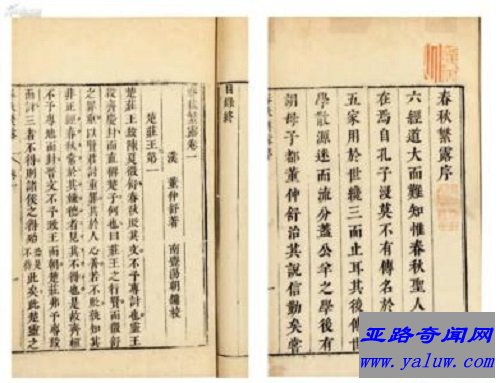 春秋繁露序
六經道大而難知惟春秋聖人
在焉自孔子沒莫不有傳名於
五家用於世纔三而止耳其後傳世
學散源迷而流分蓋公羊之學後有
胡母子都董仲舒治其說信勤矣嘗
目錄終
春秋繁露卷一
漢 董仲舒著 南豐湯朝校
楚莊王第一
楚莊王殺陳夏徵舒春秋貶其文不予專討也靈王
殺齊慶封而直稱楚子何也曰莊王之行賢而徵舒
之罪重以賢君討重罪其於人心善若不貶孰知其
非正經春秋常於其嫌得者見其不得也是故齊桓
不予專地而封晉文不予致王而朝楚莊弗予專殺
而討三者不得則諸侯之得殆此矣此楚靈之
亚路奇闻网
www.yaluw.com